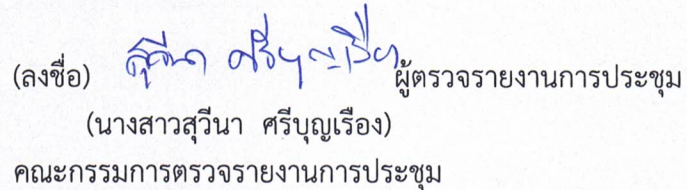 (ลงชื่อ) สุวีนา ศรีบุญเรือง ผู้ตรวจรายงานการประชุม
(นางสาวสุวีนา ศรีบุญเรือง)
คณะกรรมการตรวจรายงานการประชุม